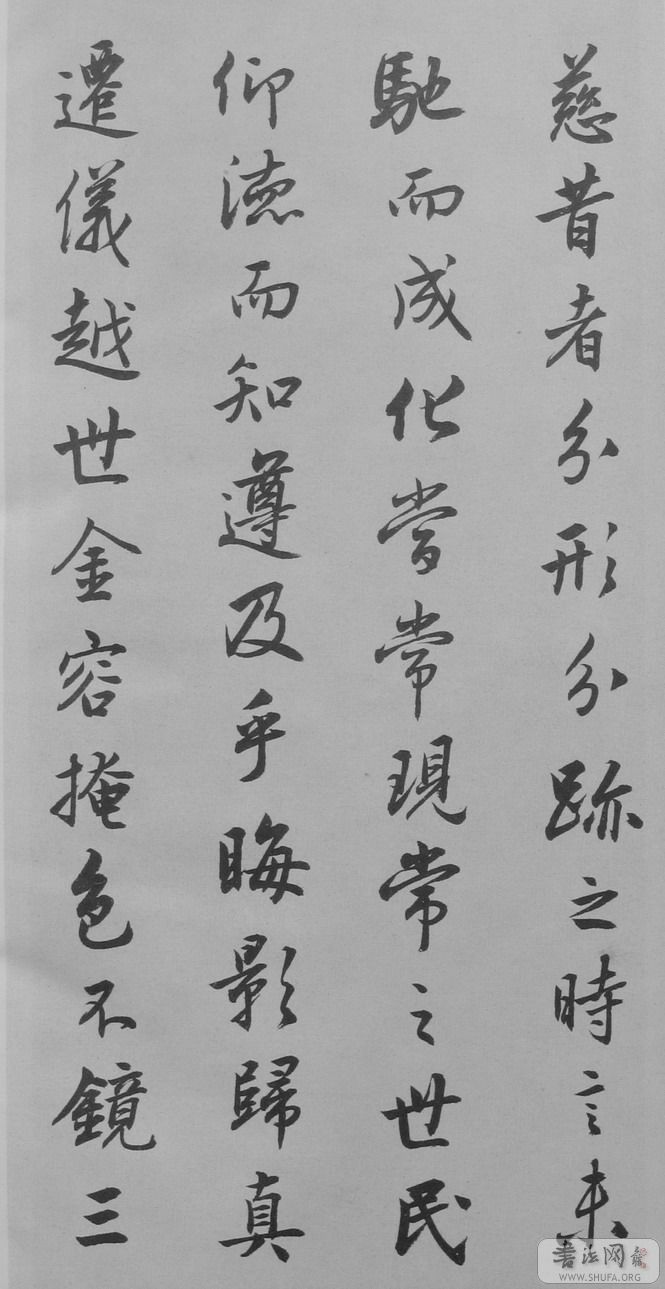 慈昔者分形分跡之時言未
馳而成化當常現常之世民
仰德而知遵及乎晦影歸真
遷儀越世金容掩色不鏡三
書法网
WWW.SHUFA.ORG